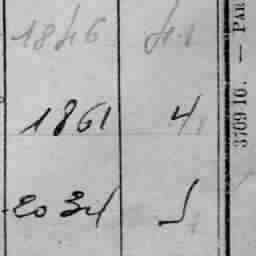 1846 41
1861 4
2034 1
3709 10. — PAR